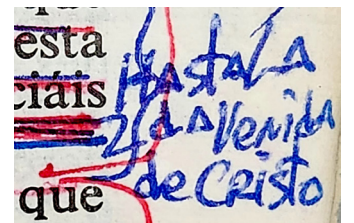 esta
ciais Hasta LA
2da Venida
que de CRisto